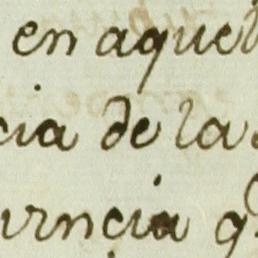 en aquel
cia de la
urncia q